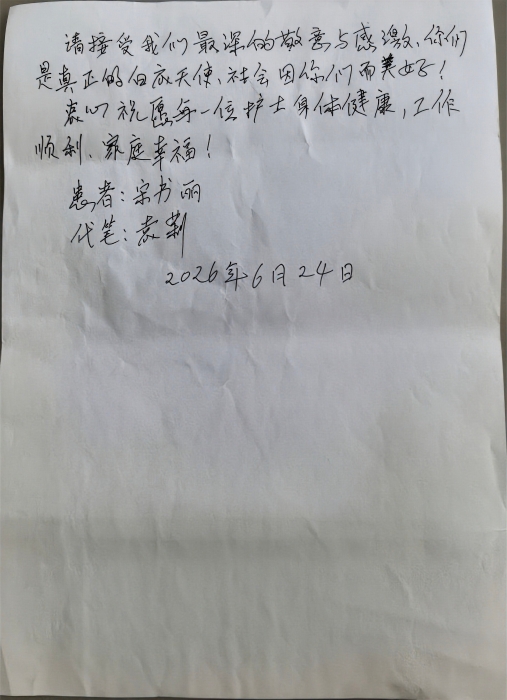 请接受我们最深的敬意与感激、你们
是真正的白衣天使、社会因你们而美好！
衷心祝愿每一位护士身体健康，工作
顺利、家庭幸福！
患者：宋书丽
代笔：袁莉
2026年6月24日